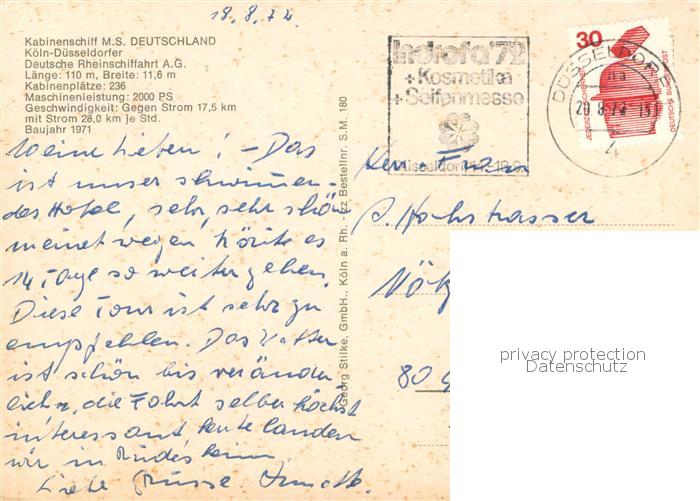 18.8.72
Kabinenschiff M.S. DEUTSCHLAND
Köln-Düsseldorfer
Deutsche Rheinschiffahrt A.G.
Länge: 110 m, Breite: 11,6 m
Kabinenplätze: 236
Maschinenleistung: 2000 PS
Geschwindigkeit: Gegen Strom 17,5 km
mit Strom 28,0 km je Std.
Baujahr 1971
Meine Lieben! - Das
ist unser schwimmen-
des Hotel, sehr, sehr schön
meinetwegen könnte es
14 Tage so weiter gehen.
Diese Tour ist sehr zu
empfehlen. Das Wetter
ist schön bis veränder
lich, die Fahrt selber höchst
interessant heute landen
wir in Rüdesheim.
Liebe Grüsse
Georg Stilke, GmbH., Köln a. Rh. - ZZ Bestellnr. S.M. 180
Indrofa'72
+Kosmetika
+Seifenmesse
Düsseldorf
30
JEDERZEIT SICHERHEIT
DEUTSCHE BUNDESPOST
DÜSSELDORF
20.8.72
4
Herr + Frau
Hochstrasser
80
privacy protection
Datenschutz